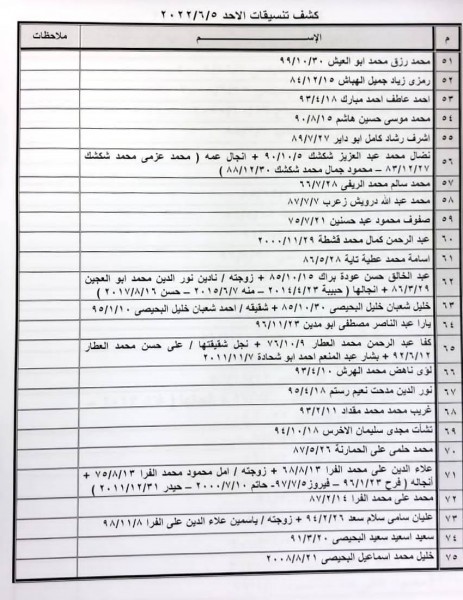 كشف تنسيقات الاحد ٢٠٢٢/٦/٥
م الإســـم ملاحظات
٥١ محمد رزق محمد ابو العيش ٩٩/١٠/٣٠
٥٢ رمزى زياد جميل الهباش ٨٤/١٢/١٥
٥٣ احمد عاطف احمد مبارك ٩٣/٤/١٨
٥٤ محمد موسى حسين هاشم ٩٠/٨/١٥
٥٥ اشرف رشاد كامل ابو داير ٨٩/٧/٢٧
٥٦ نضال محمد عبد العزيز شكشك ٩٠/١٠/٥ + انجال عمه ( محمد عزمى محمد شكشك
٨٣/١٢/٢٧ – محمود جمال محمد شكشك ٨٨/١٢/٣٠ )
٥٧ محمد سالم محمد الريفى ٦٦/٧/٢٨
٥٨ محمد عبد الله درويش زعرب ٨٧/٧/٧
٥٩ صفوف محمود عبد حسنين ٧٥/٧/٢١
٦٠ عبد الرحمن كمال محمد قشطة ٢٠٠٠/١١/٢٩
٦١ اسامة محمد عطية تاية ٨٦/٥/٢٨
٦٢ عبد الخالق حسن عودة براك ٨٥/١٠/١٥ + زوجته / نادين نور الدين محمد ابو العجين
٨٦/٣/٢٩ + انجالها ( حبيبة ٢٠١٤/٤/٢٣ – منه ٢٠١٥/٦/٧ – حسن ٢٠١٧/٨/١٦ )
٦٣ خليل شعبان خليل البحيصى ٨٥/١٠/٣٠ + شقيقه / احمد شعبان خليل البحيصى ٩٥/١/١٠
٦٤ يارا عبد الناصر مصطفى ابو مدين ٩٦/١١/٢٣
٦٥ كفا عبد الرحمن محمد العطار ٧٦/١٠/٩ + نجل شقيقتها / على حسن محمد العطار
٩٢/٦/١٢ + بشار عبد المنعم احمد ابو شحادة ٢٠١١/١١/٧
٦٦ لؤى ناهض محمد الهرش ٩٣/٤/١٠
٦٧ نور الدين مدحت نعيم رستم ٩٥/٤/١٨
٦٨ غريب محمد محمد مقداد ٩٣/٢/١١
٦٩ نشأت مجدى سليمان الاخرس ٩٤/١٠/١٨
٧٠ محمد حلمى على الحمارنة ٨٧/٥/٢٦
٧١ علاء الدين على محمد الفرا ٦٨/٨/١٣ + زوجته / امل محمود محمد الفرا ٧٥/٨/١٣ +
أنجاله ( فرح ٩٦/١/٢٣ – فيروز٩٧/٧/٥- حاتم ٢٠٠٠/٧/١٠ – حيدر ٢٠١١/١٢/٣١ )
٧٢ محمد على محمد الفرا ٨٧/٢/١٤
٧٣ عليان سامى سلام سعد ٩٤/٢/٢٦ + زوجته / ياسمين علاء الدين على الفرا ٩٨/١١/٨
٧٤ سعيد اسعيد سعيد البحيصى ٩١/٣/٢٠
٧٥ خليل محمد اسماعيل البحيصى ٢٠٠٨/٨/٢١